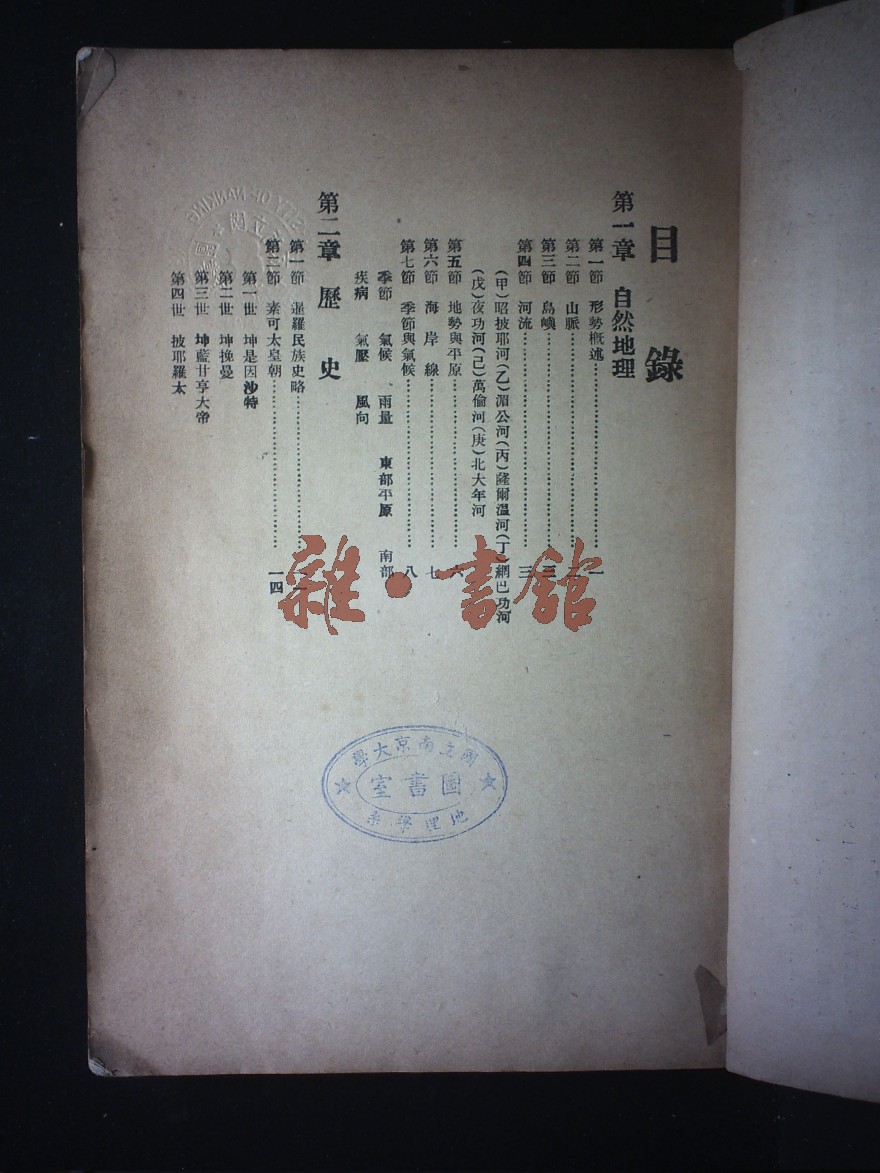 目錄
第一章 自然地理
第一節 形勢概述……………一
第二節 山脈……………
第三節 島嶼……………三
第四節 河流……………三
(甲)昭披耶河(乙)湄公河(丙)薩爾溫河(丁)網巴功河
(戊)夜功河(己)萬倫河(庚)北大年河
第五節 地勢與平原……………六
第六節 海岸線……………七
第七節 季節與氣候……………八
季節 氣候 雨量 東部平原 南部
疾病 氣壓 風向
第二章 歷史
第一節 暹羅民族史略……………
第二節 素可太皇朝……………一四
第一世 坤是因沙特
第二世 坤挽曼
第三世 坤藍甘亨大帝
第四世 披耶羅太
雜·書館
國立南京大學
圖書室
地理學系
SITY OF NANKING